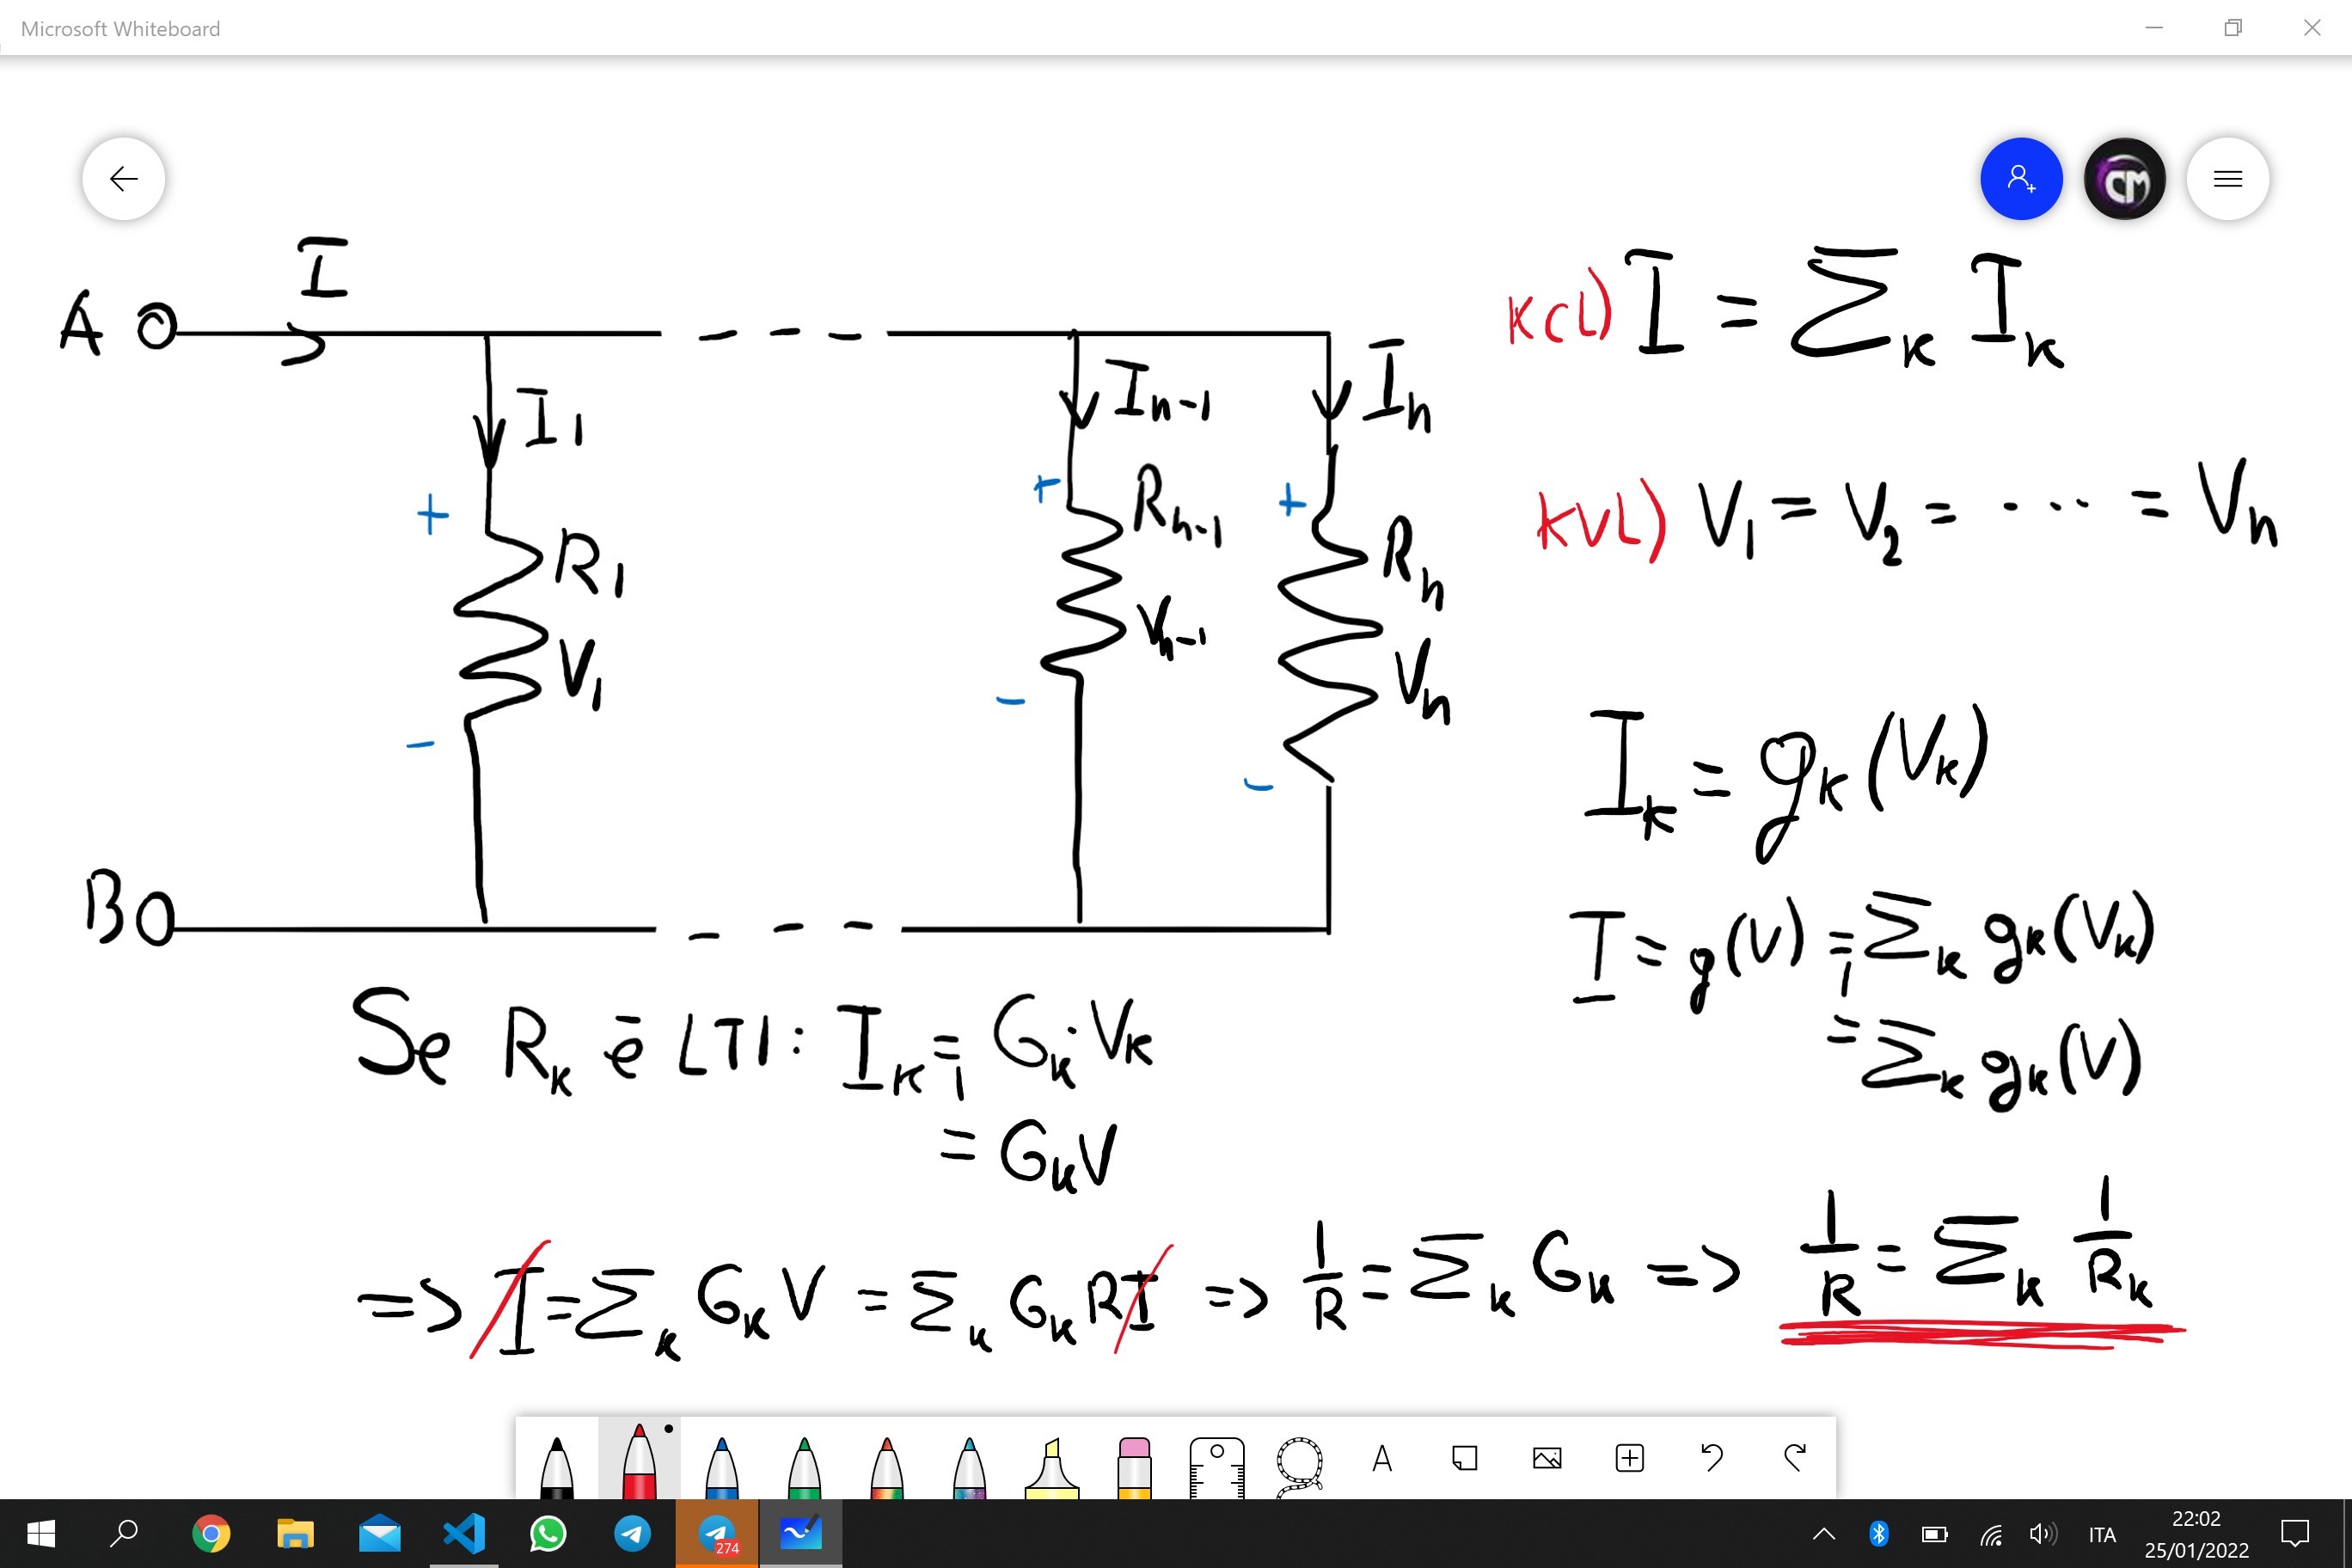 Microsoft Whiteboard
CM
I
A
I₁
Iₙ₋₁
Iₙ
KCL) I = Σₖ Iₖ
+
+
+
R₁
V₁
Rₙ₋₁
Vₙ₋₁
Rₙ
Vₙ
KVL) V₁ = V₂ = ... = Vₙ
-
-
-
B
Iₖ = gₖ(Vₖ)
I = g(V) = Σₖ gₖ(Vₖ)
= Σₖ gₖ(V)
Se Rₖ è LTI: Iₖ = Gₖ·Vₖ
= GₖV
=> I = Σₖ GₖV = Σₖ GₖRI => 1/R = Σₖ Gₖ => 1/R = Σₖ 1/Rₖ
A
274
ITA
22:02
25/01/2022